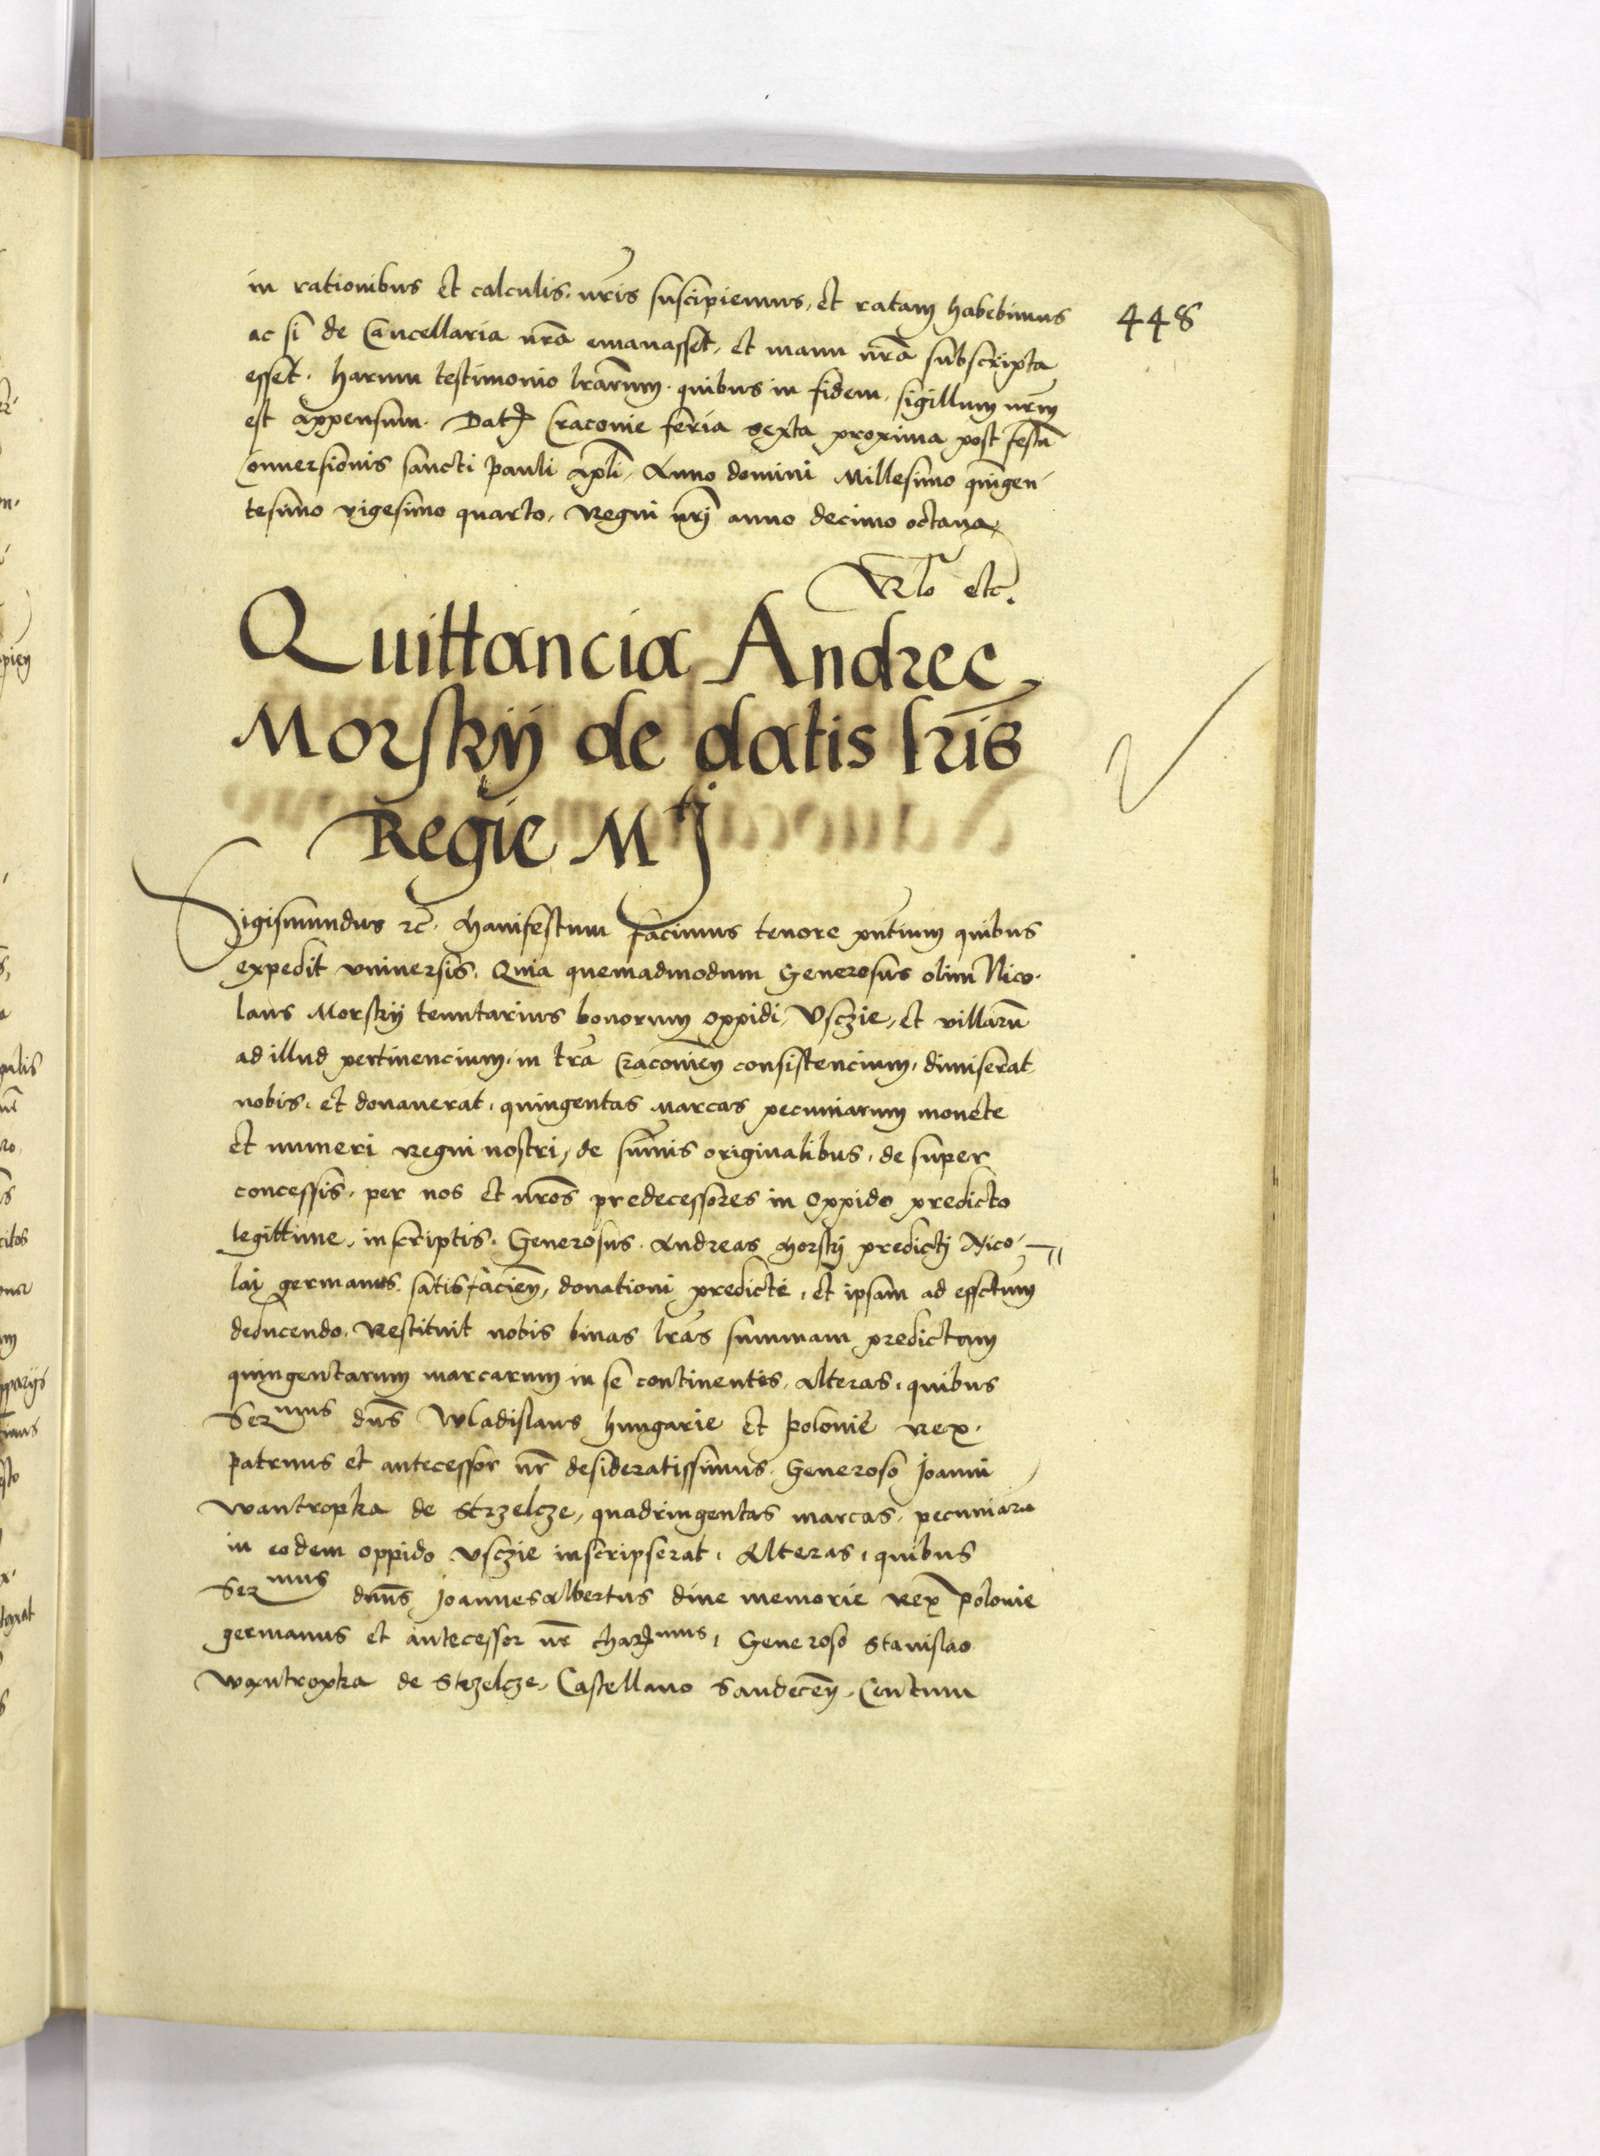 in rationibus et calculis nr̃is suscipiemus, et ratam habebimus
448
ac si de Cancellaria nr̃a emanasset, et manu nr̃a subscripta
esset. harum testimonio lr̃arum. quibus in fidem, sigillum nr̃m
est appensum. Datƺ Cracovie feria sexta proxima post festũ
Conversionis sancti Pauli apl̃i, Anno domini Millesimo quingen-
tesimo vigesimo quarto, Regni nr̃j anno decimo octava
Rl̃o etc.
Quittancia Andree
Morskÿ de datis lr̃is
Regie Mtj
Sigismundus ꝛc̃. Manifestum facimus tenore pñtium quibus
expedit vniversis. Quia quemadmodum Generosus olim Nico-
laus Morskÿ tenutarius bonorum oppidi, Vsczie, et villarũ
ad illud pertinencium, in tr̃a Cracovieñ consistencium, dimiserat
nobis, et donaverat, quingentas Marcas pecuniarum monete
et numeri Regni nostri, de sum̃is originalibus, de super
concessis, per nos et nr̃os predecessores in oppido predicto
legittime, inscriptis. Generosus Andreas Morskÿ predictj Nico-
laj germanus satisfacieñ, donationi predicte, et ipsam ad effctum
deducendo. Restituit nobis binas lr̃as summam predictam
quingentarum marcarum in se continentes, Alteras, quibus
Sermus dñs Wladislaus hungarie et Polonie Rex.
Patruus et antecessor nr̃ desideratissimus. Generoso Joanni
Wantropka de Strzelcze, quadringentas marcas, pecuniarũ
in eodem oppido Vsczie inscripserat, Alteras, quibus
Ser mus dñus Joannes Albertus dive memorie Rex Polonie
germanus et antecessor nr̃ charƺmus, Generoso Stanislao
Wantropka de Strzelcze, Castellano Sandeceñ, Centum